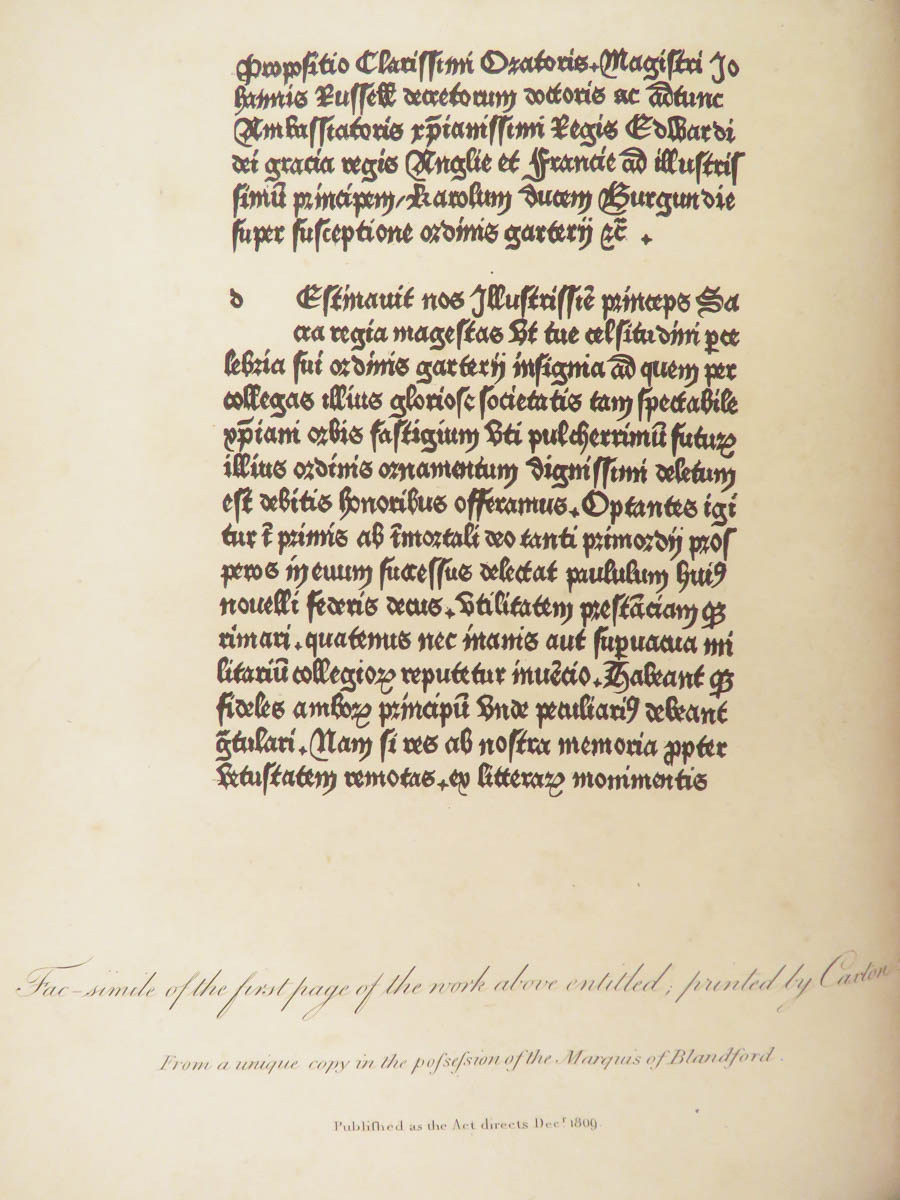 Propositio Clarissimi Oratoris. Magistri Jo
hannis Russell decretorum doctoris ac ad̄tunc
Ambassiatoris xp̄ianissimi Regis Edwardi
dei gracia regis Anglie et Francie ad̄ illustris
simū principem/ Karolum ducem Burgundie
super susceptione ordinis garterij ⁊c̄ .
d Estinauit nos Illustrissīe princeps Sa
cra regia magestas Vt tue celsitudini ꝑce
lebria sui ordinis garterij insignia ad̄ quem per
collegas illius gloriose societatis tam spectabile
xp̄iani orbis fastigium Vti pulcherrimū futuꝝ
illius ordinis ornamentum dignissimi deletum
est debitis honoribus offeramus. Optantes igi
tur ī primis ab īmortali deo tanti primordij pros
peros in euum successus delectat paululum huiꝰ
nouelli federis decus. Vtilitatem prestāciam qꝫ
rimari. quatenus nec inanis aut suꝑuacua mi
litariū collegioꝝ reputetur inuēcio. Habeant qꝫ
fideles amboꝝ principū Vnde peculiariꝰ debeant
g̃tulari. Nam si res ab nostra memoria ꝓpter
Vetustatem remotas. ex litteraꝝ monimentis
Fac-simile of the first page of the work above entitled; printed by Caxton
From a unique copy in the poſseſsion of the Marquis of Blandford.
Publiſhed as the Act directs Decʳ 1809.